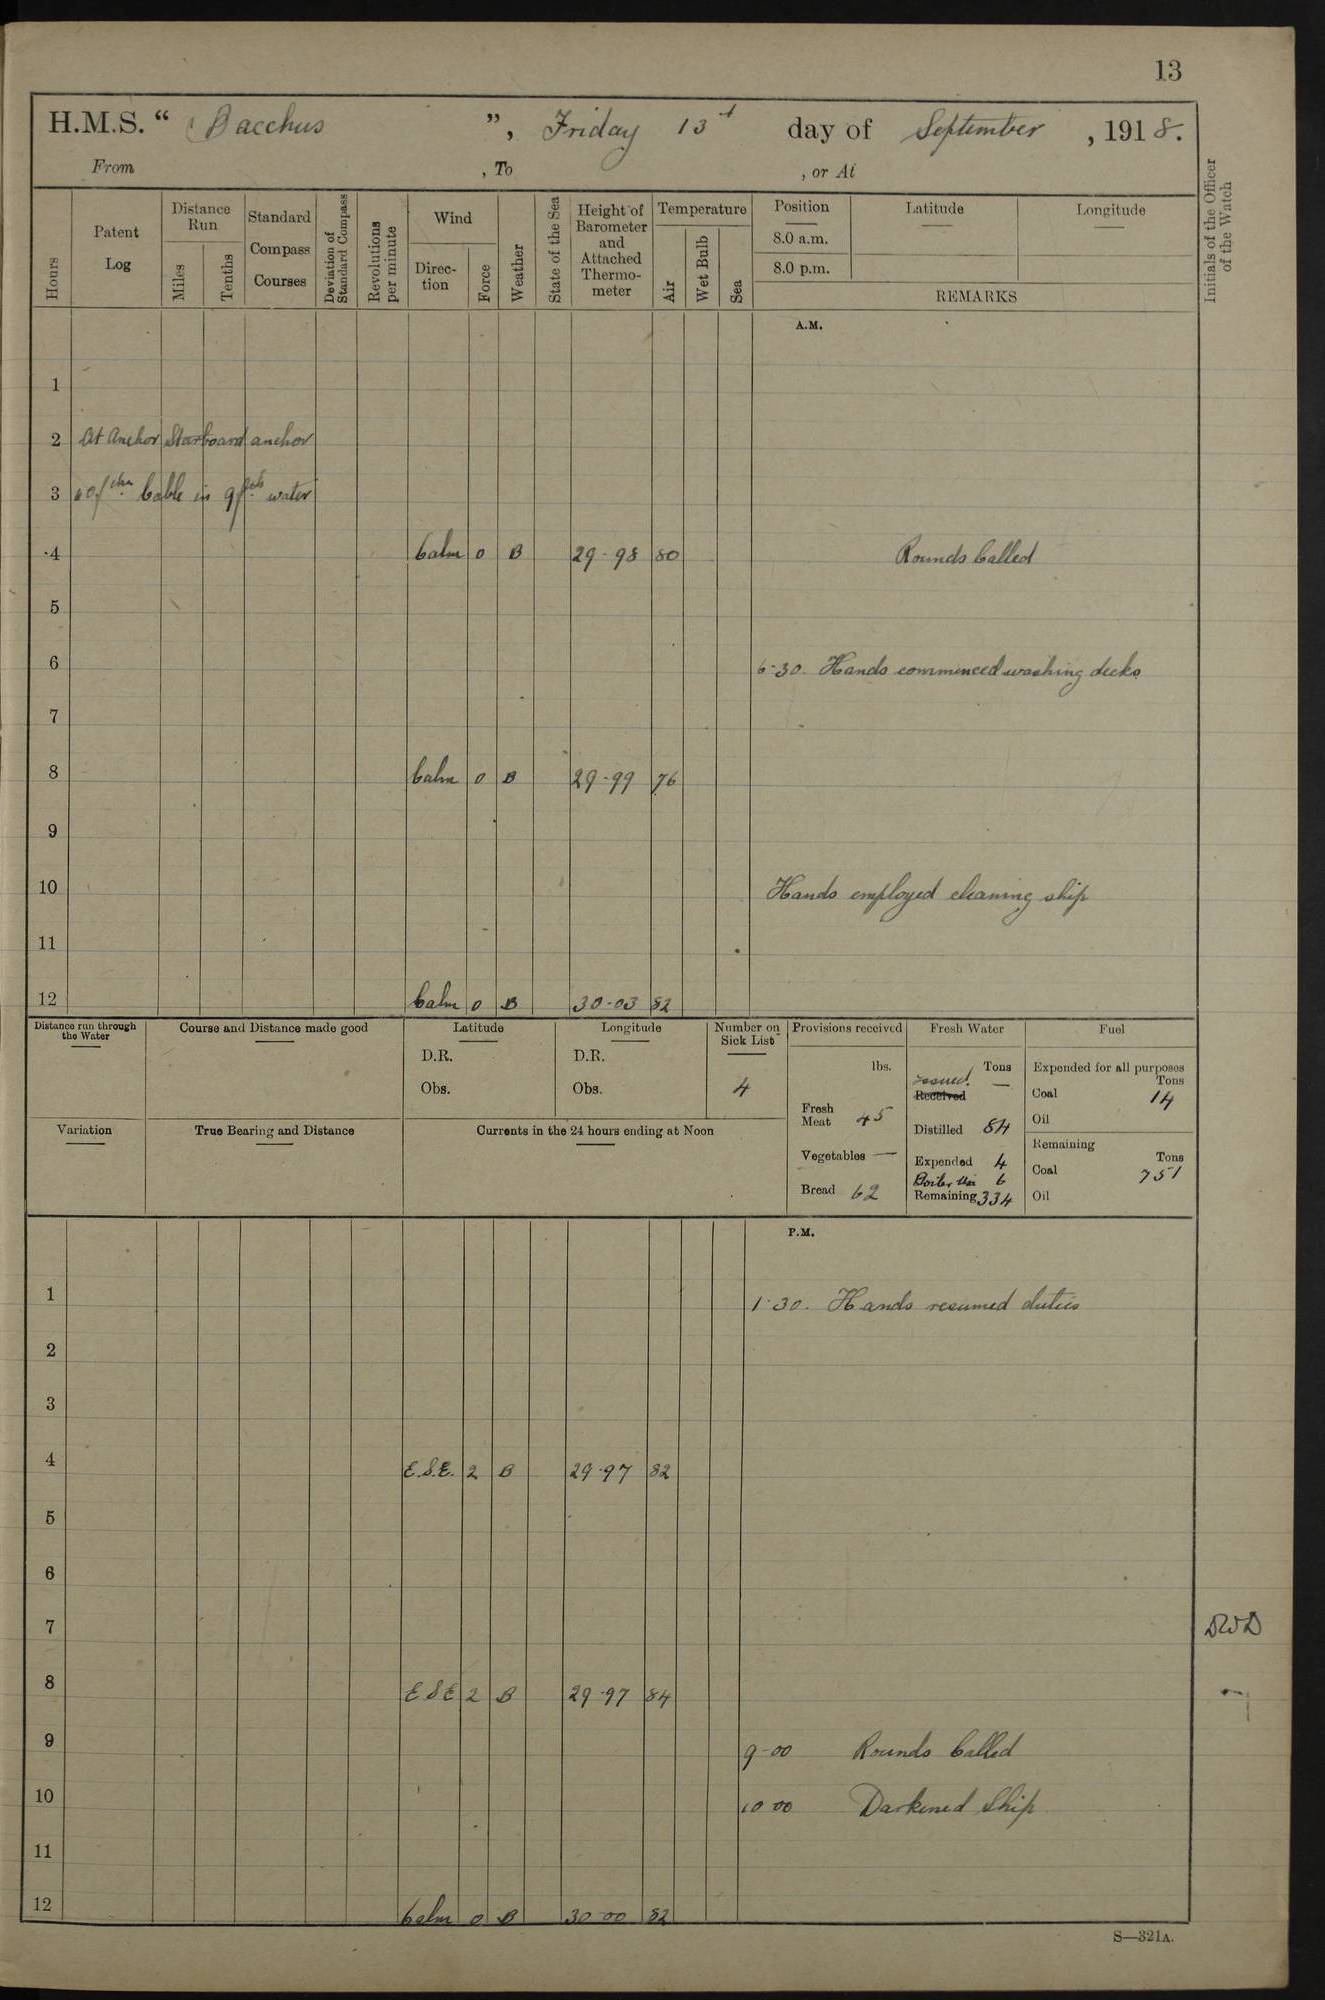 13
H.M.S. “ Bacchus ”, Friday 13th day of September , 1918.
From , To , or At
Hours
Patent Log
Distance Run
Miles
Tenths
Standard Compass Courses
Deviation of Standard Compass
Revolutions per minute
Wind
Direc-tion
Force
Weather
State of the Sea
Height of Barometer and Attached Thermo-meter
Temperature
Air
Wet Bulb
Sea
Position
8.0 a.m.
8.0 p.m.
Latitude
Longitude
REMARKS
Initials of the Officer of the Watch
A.M.
1
2 At Anchor Starboard anchor
3 fthm Cable in 9 fths water
4 Calm 0 B 29-98 80 Rounds Called
5
6 6-30. Hands commenced washing decks
7
8 Calm 0 B 29-99 76
9
10 Hands employed cleaning ship
11
12 Calm 0 B 30-03 82
Distance run through the Water
Course and Distance made good
Latitude
D.R.
Obs.
Longitude
D.R.
Obs.
Number on Sick List
4
Provisions received
lbs.
Fresh Meat 45
Vegetables —
Bread 62
Fresh Water
Tons
Issued. —
Received
Distilled 84
Expended 4
Boiler Use 6
Remaining 334
Fuel
Expended for all purposes
Tons
Coal 14
Oil
Remaining
Tons
Coal 751
Oil
Variation
True Bearing and Distance
Currents in the 24 hours ending at Noon
P.M.
1 1-30. Hands resumed duties
2
3
4 E.S.E. 2 B 29-97 82
5
6
7 DWD
8 E S E 2 B 29-97 84
9 9-00 Rounds Called
10 10 00 Darkened Ship
11
12 Calm 0 B 30-00 82
S—321A.